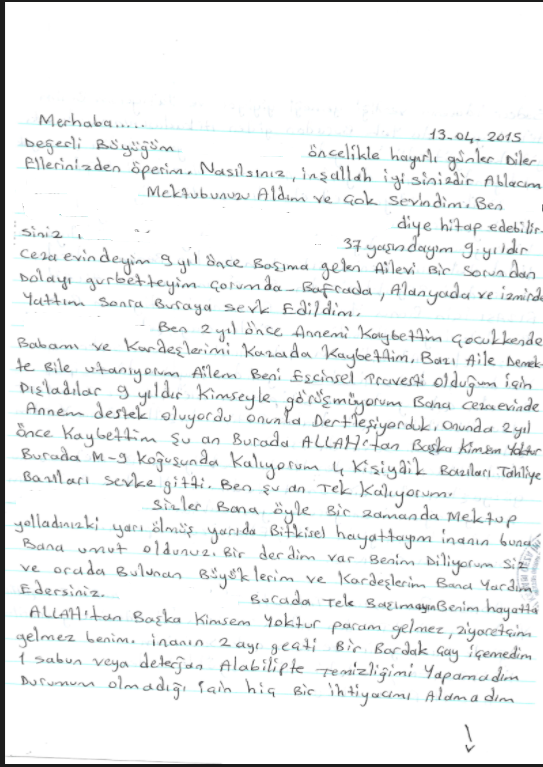 Merhaba.....
13-04-2015
Değerli Büyüğüm öncelikle hayırlı günler Diler
Ellerinizden öperim. Nasılsınız, inşallah iyi sinizdir Ablacım
Mektubunuzu Aldım ve çok sevindim. Ben
diye hitap edebilir-
siniz.
37 yaşındayım 9 yıldır
cezaevindeyim 9 yıl önce Başıma gelen Ailevi Bir Sorundan
Dolayı gurbetteyim Çorumda - Bafrada, Alanyada ve izmirde
Yattım Sonra Buraya Sevk Edildim.
Ben 2 yıl önce Annemi Kaybettim Çocukkende
Babamı ve Kardeşlerimi Kazada Kaybettim. Bazı Aile Demek-
te Bile utanıyorum Ailem Beni Eşcinsel Travesti olduğum için
Dışladılar 9 yıldır Kimseyle görüşmüyorum Bana cezaevinde
Annem destek oluyordu onunla Dertleşiyorduk. onunda 2 yıl
önce Kaybettim Şu an Burada ALLAH'tan Başka Kimsem Yoktur
Burada M-9 Koğuşunda Kalıyorum 4 Kişiydik Bazıları Tahliye
Bazıları sevke gitti. Ben şu an Tek Kalıyorum.
Sizler Bana öyle Bir zamanda Mektup
yolladınızki yarı ölmüş yarıda Bitkisel hayattayım inanın buna
Bana umut oldunuz. Bir derdim var Benim Diliyorum Siz
ve orada Bulunan Büyüklerim ve Kardeşlerim Bana Yardım
Edersiniz. Burada Tek Başımayın Benim hayatta
ALLAH'tan Başka Kimsem Yoktur param gelmez, ziyaretçim
gelmez benim. inanın 2 ayı geçti Bir Bardak çay içemedim
1 sabun veya deterjan Alabilipte Temizliğimi Yapamadım
Durumum olmadığı için hiç Bir ihtiyacımı Alamadım